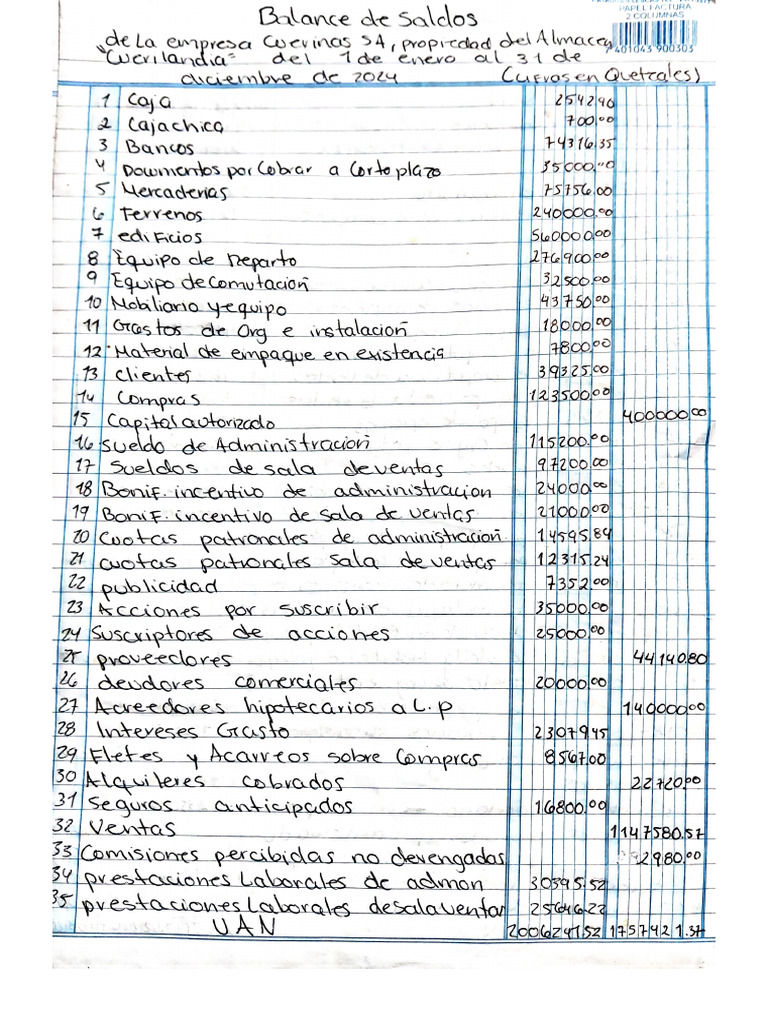 PAPEL FACTURA
2 COLUMNAS
401043 900303
Balance de Saldos
de La empresa Cuerinas SA, propiedad del Almacen
"Cuerilandia" del 1 de enero al 31 de
diciembre de 2024 (Cifras en Quetzales)
1 Caja 25429.0
2 Caja chica 700.00
3 Bancos 74316.35
4 Documentos por Cobrar a Corto plazo 35000.00
5 Mercaderias 75756.00
6 Terrenos 240000.00
7 edificios 560000.00
8 Equipo de reparto 276900.00
9 Equipo de Comutación 32500.00
10 Mobiliario y equipo 43750.00
11 Gastos de Org e instalación 18000.00
12 Material de empaque en existencia 7800.00
13 clientes 39325.00
14 Compras 123500.00
15 Capital autorizado 400000.00
16 Sueldo de Administración 115200.00
17 Sueldos de sala de ventas 97200.00
18 Bonif. incentivo de administracion 24000.00
19 Bonif. incentivo de sala de ventas 21000.00
20 Cuotas patronales de administración 14595.84
21 cuotas patronales sala de ventas 12315.24
22 publicidad 7352.00
23 Acciones por suscribir 35000.00
24 Suscriptores de acciones 25000.00
25 proveedores 44140.80
26 deudores comerciales 20000.00
27 Acreedores hipotecarios a L.p 140000.00
28 Intereses Gasto 23079.45
29 Fletes y Acarreos sobre Compras 8567.00
30 Alquileres cobrados 22720.00
31 Seguros anticipados 16800.00
32 Ventas 1147580.57
33 Comisiones percibidas no devengadas 2980.00
34 prestaciones Laborales de admon 30395.52
35 prestaciones Laborales de sala ventas 25646.22
UAN 2006241.52 1757421.37